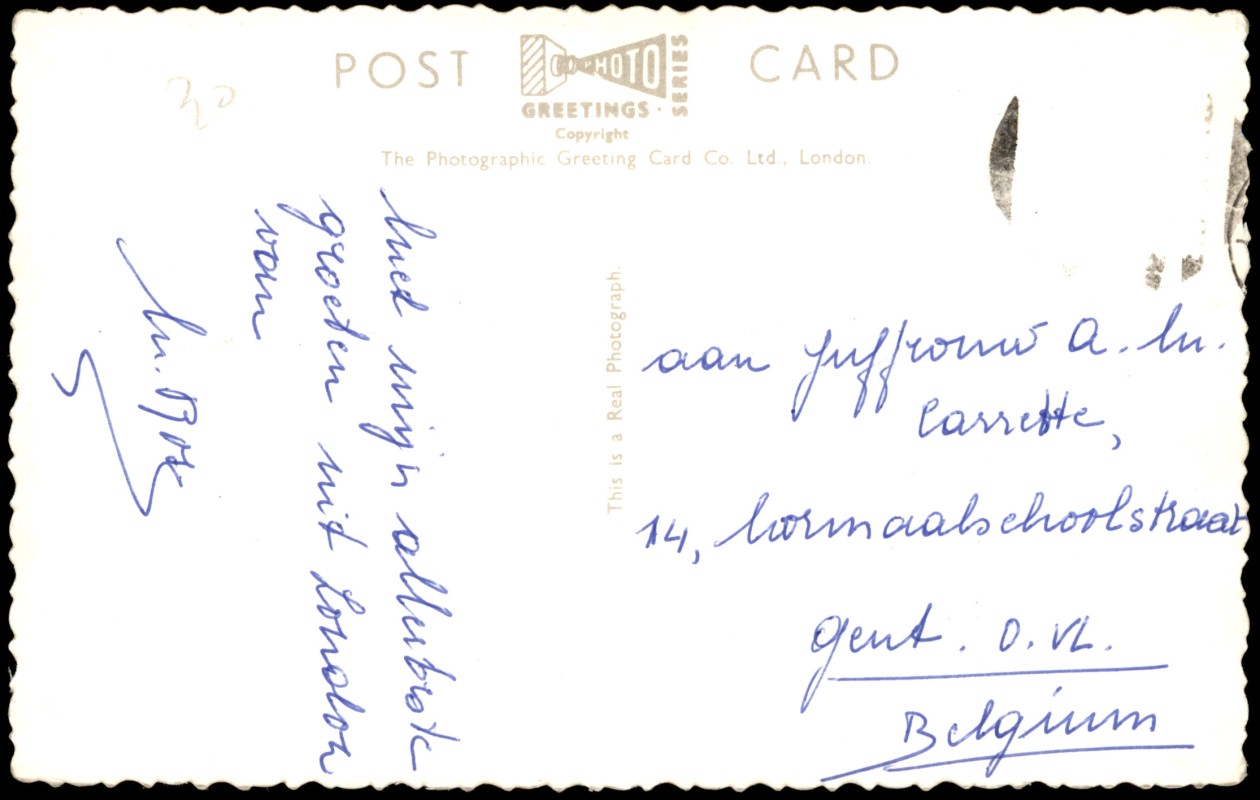 POST CARD
PHOTO
SERIES
GREETINGS
Copyright
The Photographic Greeting Card Co. Ltd., London.
This is a Real Photograph.
30
met mijn allerbeste
groeten uit London
van
M. Box
aan Juffrouw A. M.
Carrette,
14, Normaalschoolstraat
Gent. O. VL.
Belgium